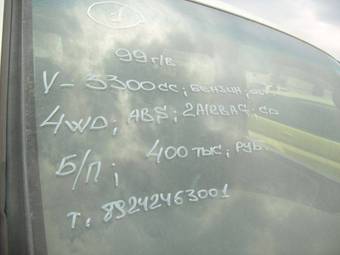 1
99 г/в
V- 3300 сс; БЕНЗИН;
4WD; ABS; 2AIRBAG; CD
Б/П; 400 тыс; РУБ.
Т. 89242463001